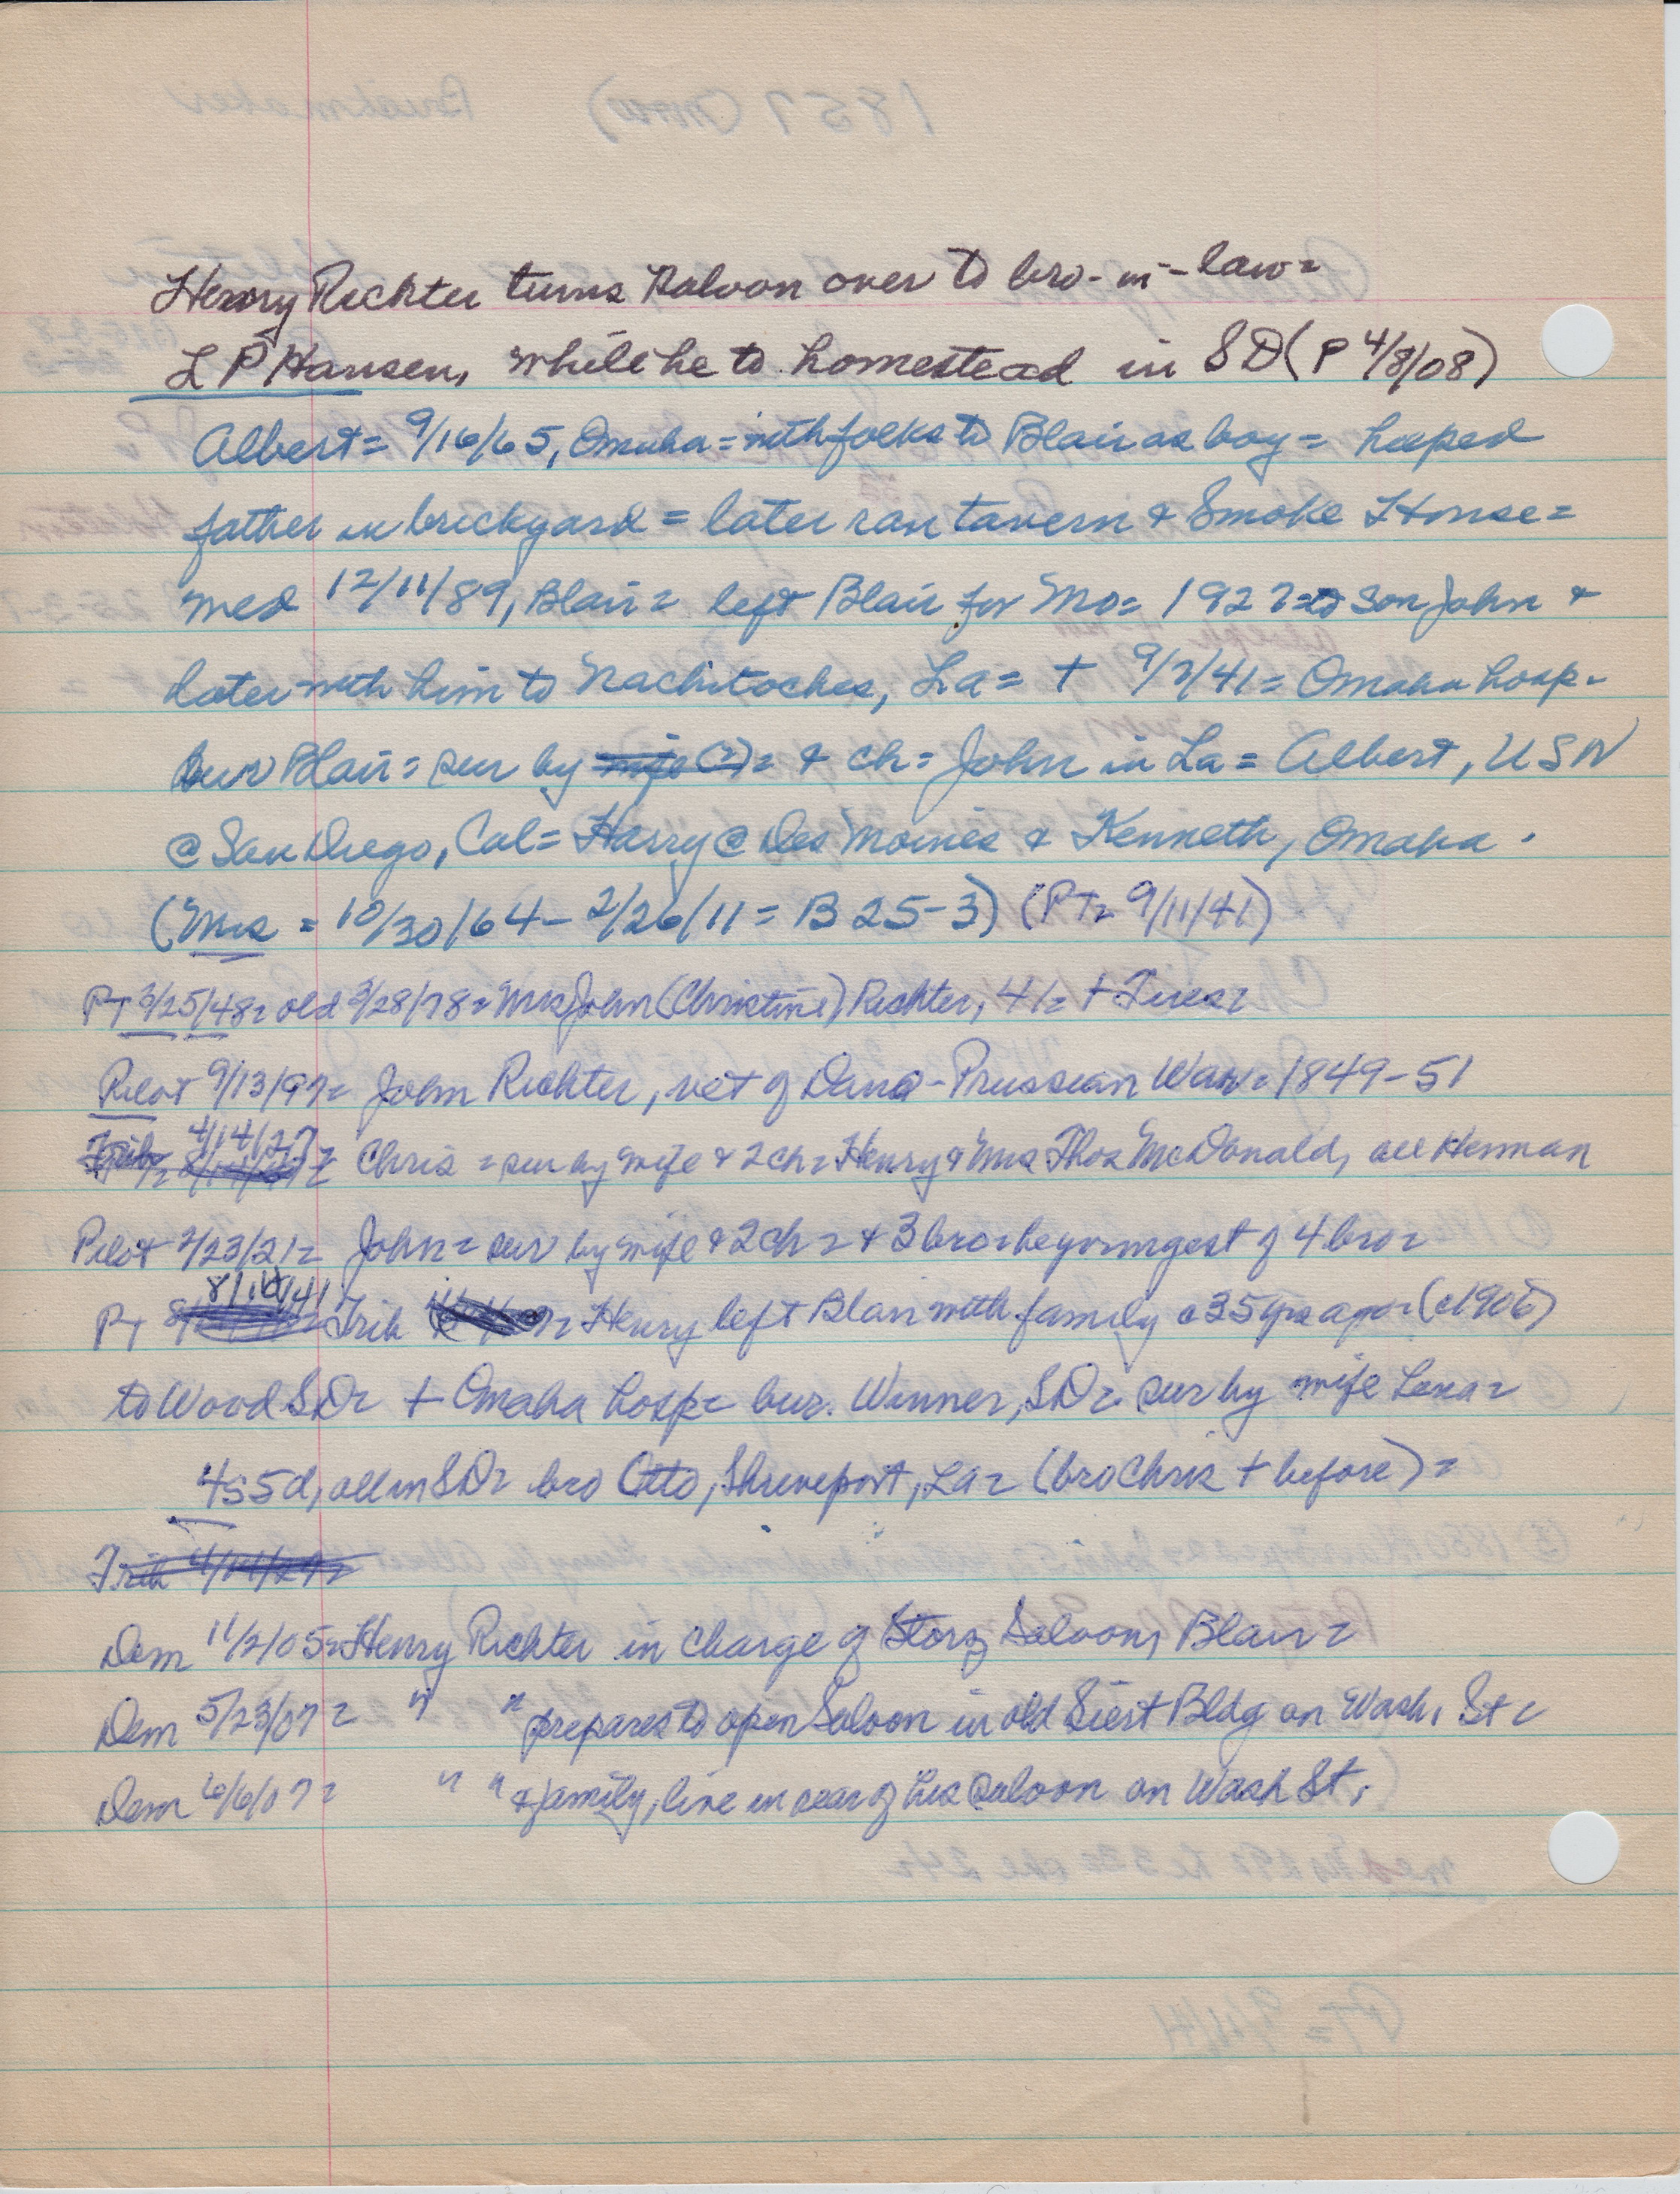 Henry Richter turns Saloon over to bro-in-law=
L P Hansen, while he to homestead in SD (P 4/8/08)
Albert = 9/16/65, Omaha = with folks to Blair as boy = helped
father in brickyard = later ran tavern & Smoke House =
med 12/11/89, Blair = left Blair for Mo = 1927 = to son John &
later with him to Nachitoches, La = + 9/7/41 = Omaha hosp.
bur Blair = sur by wife (2) = & ch = John in La = Albert, USN
@ San Diego, Cal = Harry @ Des Moines & Kenneth, Omaha.
(Mrs = 10/30/64 - 2/26/11 = B 25-3) (PT = 9/11/41)
PT 3/25/48 = old 3/28/78 = Mrs John (Christine) Richter, 41 = +
Pilot 9/13/97 = John Richter, vet of Dano-Prussian War = 1849-51
Trib 4/14/27 = Chris = sur by wife & 2 ch = Henry & Mrs Thos McDonald, all Herman
Pilot 2/23/21 = John = sur by wife & 2 ch = & 3 bro = he youngest of 4 bro =
PT 8/14/41 Trib = Henry left Blair with family c 35 yrs ago = (c1906)
to Wood SD = + Omaha hosp = bur. Winner, SD = sur by wife Lena =
4s 5d, all in SD = bro Otto, Shreveport, La = (bro Chris + before) =
Trib 4/14/27 =
Dem 11/2/05 = Henry Richter in charge of Storz Saloon, Blair =
Dem 5/23/07 = " " prepares to open Saloon in old Siert Bldg on Wash. St =
Dem 6/6/07 = " " & family, live in rear of his Saloon on Wash St.